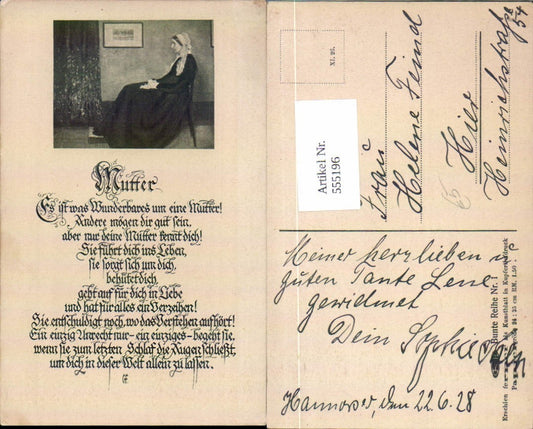 Mutter
Es ist was Wunderbares um eine Mutter!
Andere mögen dir gut sein,
aber nur deine Mutter kennt dich!
Sie führt dich ins Leben,
sie sorgt sich um dich,
behütet dich,
geht auf für dich in Liebe
und hat für alles ein Verzeihen!
Sie entschuldigt noch, wo das Verstehen aufhört!
Ein einzig Unrecht nur - ein einziges - begeht sie,
wenn sie zum letzten Schlaf die Augen schließt,
um dich in dieser Welt allein zu lassen.
XI. 26.
Artikel Nr.
555196
Frau
Helene Feind
Hier
Heinrichstraße
54
Meiner herzlieben u.
guten Tante Lene
gewidmet
Dein Sophie
Hannover, den 22.6.28
Bunte Reihe Nr. 1
Erschien
als Kunstblatt in Kupfer
24 : 33 cm RM. 1,50